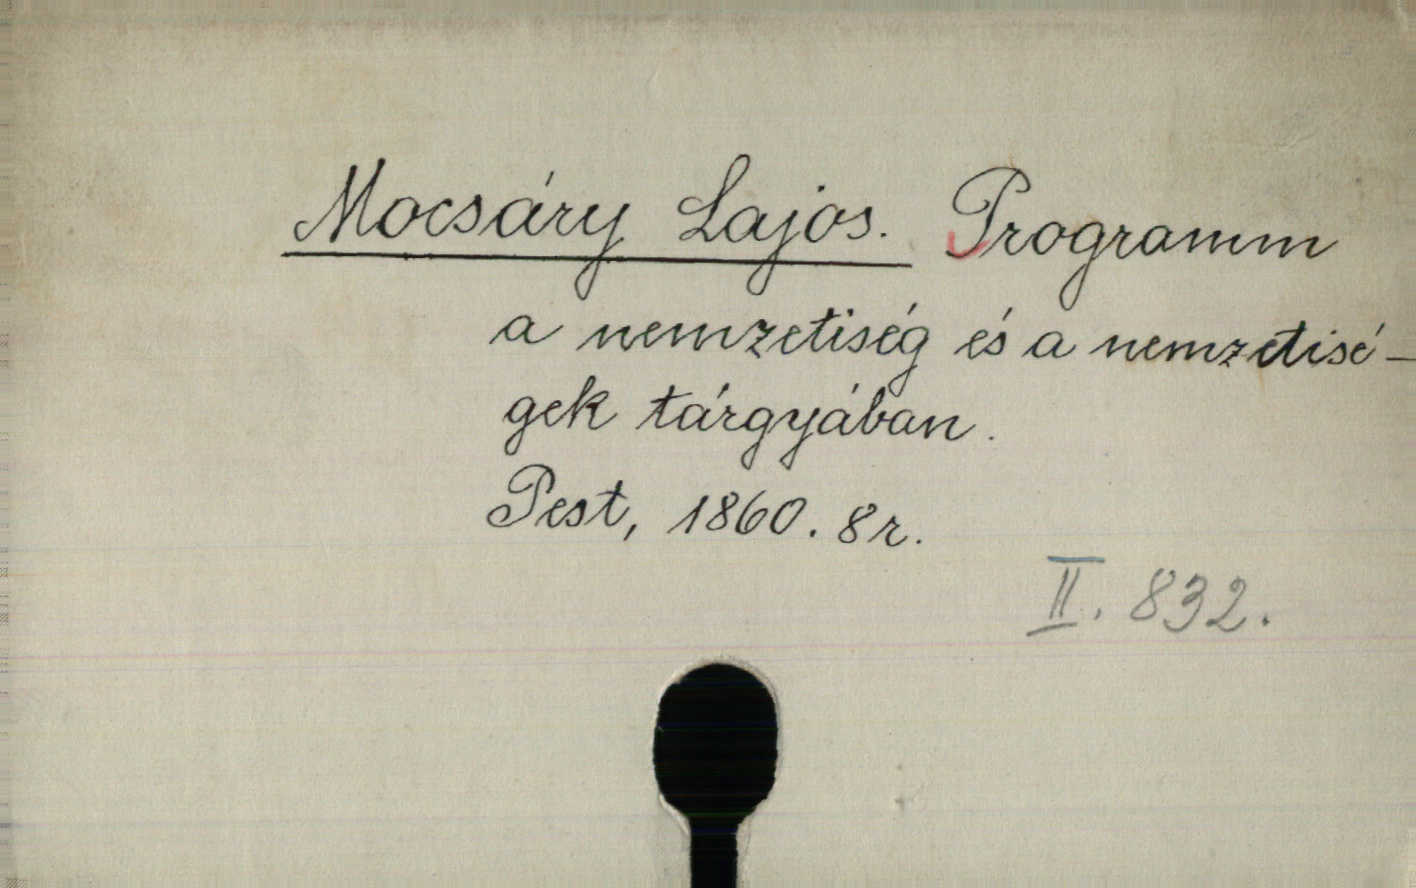 Mocsáry Lajos. Programm
a nemzetiség és a nemzetisé-
gek tárgyában.
Pest, 1860. 8r.
II. 832.